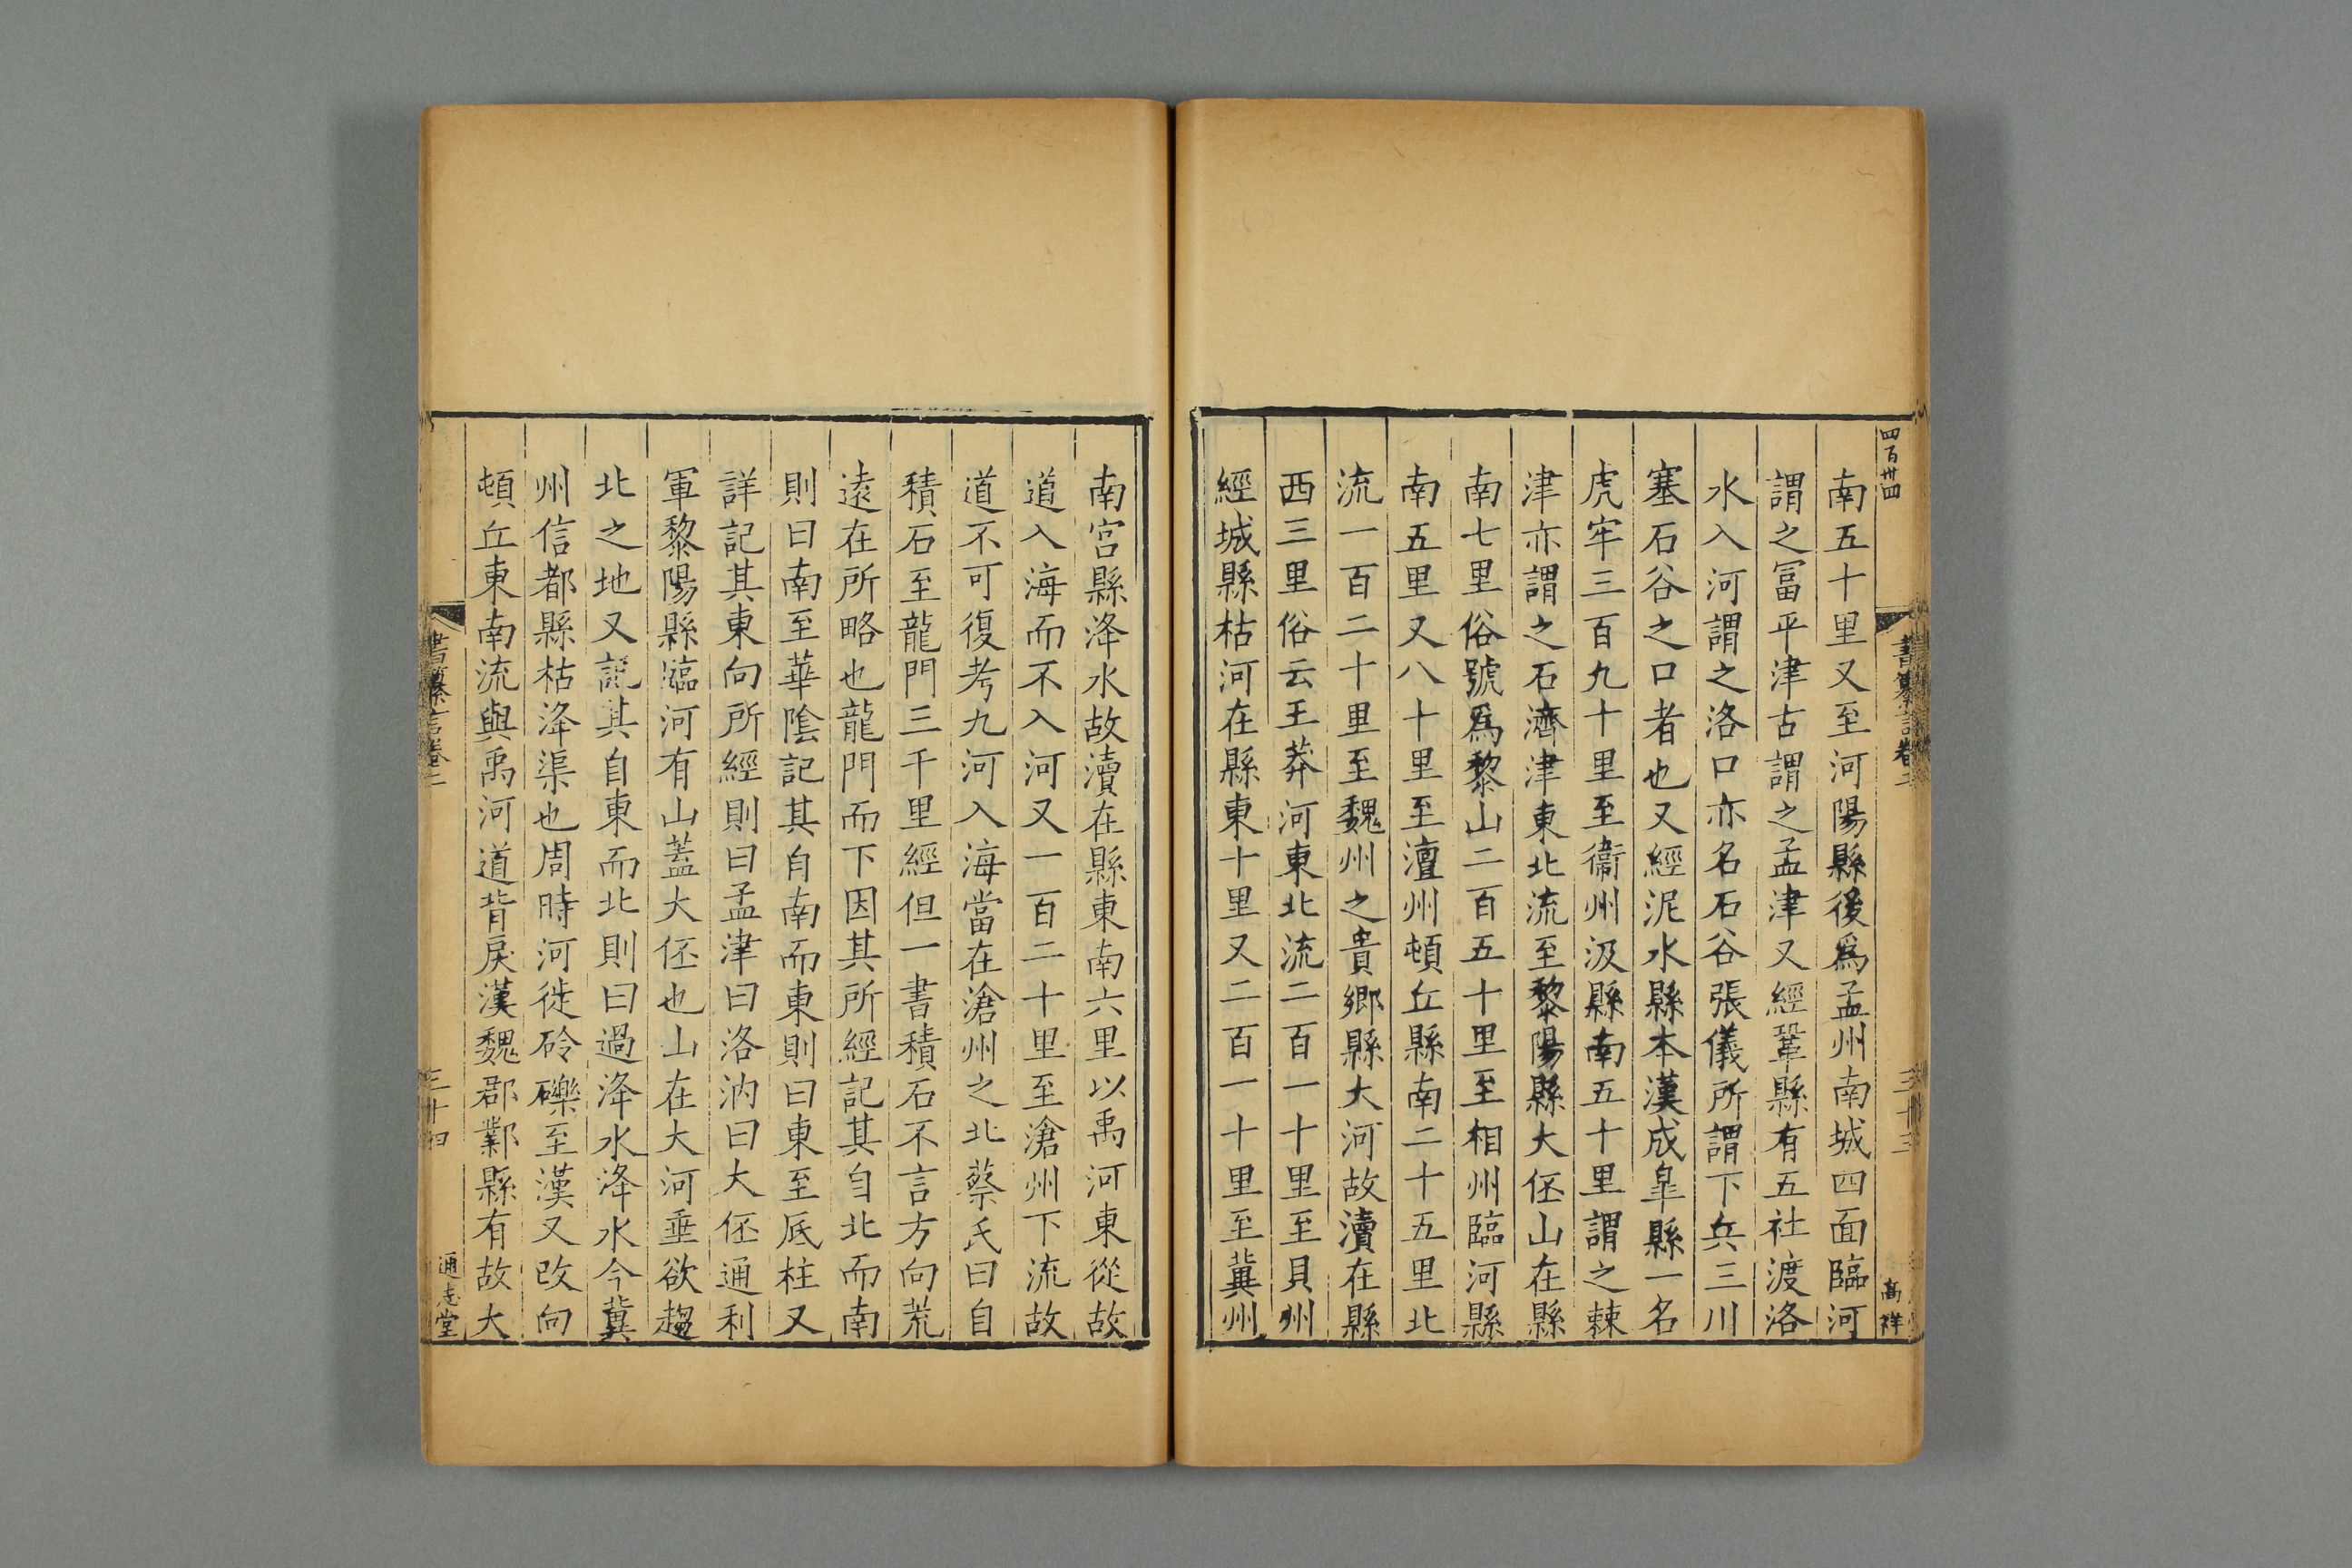 四百卅四
書纂言卷二
三十三
高祥
南五十里又至河陽縣後爲孟州南城四面臨河
謂之冨平津古謂之孟津又經鞏縣有五社渡洛
水入河謂之洛口亦名石谷張儀所謂下兵三川
塞石谷之口者也又經泥水縣本漢成皐縣一名
虎牢三百九十里至衞州汲縣南五十里謂之棘
津亦謂之石濟津東北流至黎陽縣大伾山在縣
南七里俗號爲黎山二百五十里至相州臨河縣
南五里又八十里至澶州頓丘縣南二十五里北
流一百二十里至魏州之貴鄉縣大河故瀆在縣
西三里俗云王莽河東北流二百一十里至貝州
經城縣枯河在縣東十里又二百一十里至冀州
南宮縣洚水故瀆在縣東南六里以禹河東從故
道入海而不入河又一百二十里至滄州下流故
道不可復考九河入海當在滄州之北蔡氏曰自
積石至龍門三千里經但一書積石不言方向荒
逺在所略也龍門而下因其所經記其自北而南
則曰南至華隂記其自南而東則曰東至厎柱又
詳記其東向所經則曰孟津曰洛汭曰大伾通利
軍黎陽縣臨河有山蓋大伾也山在大河垂欲趨
北之地又記其自東而北則曰過洚水洚水今冀
州信都縣枯洚渠也周時河徙砱礫至漢又改向
頓丘東南流與禹河道背戾漢魏郡鄴縣有故大
書纂言卷二
三十四
通志堂